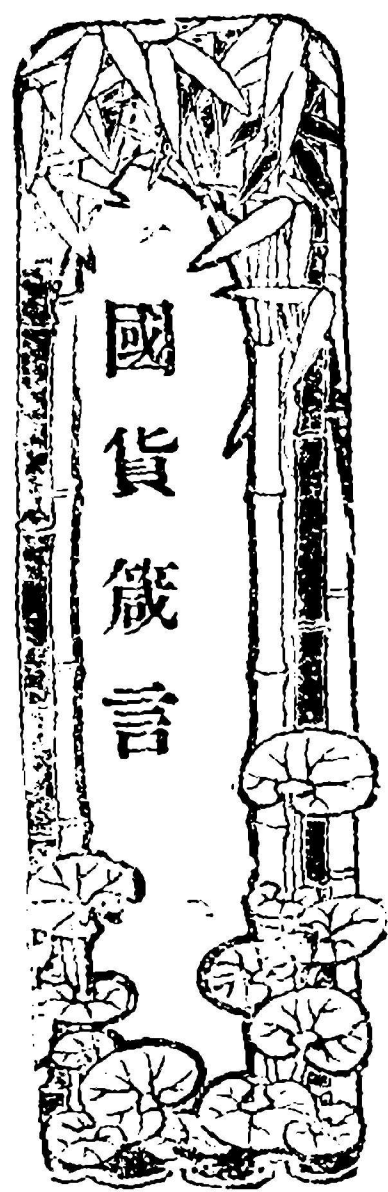 國貨箴言